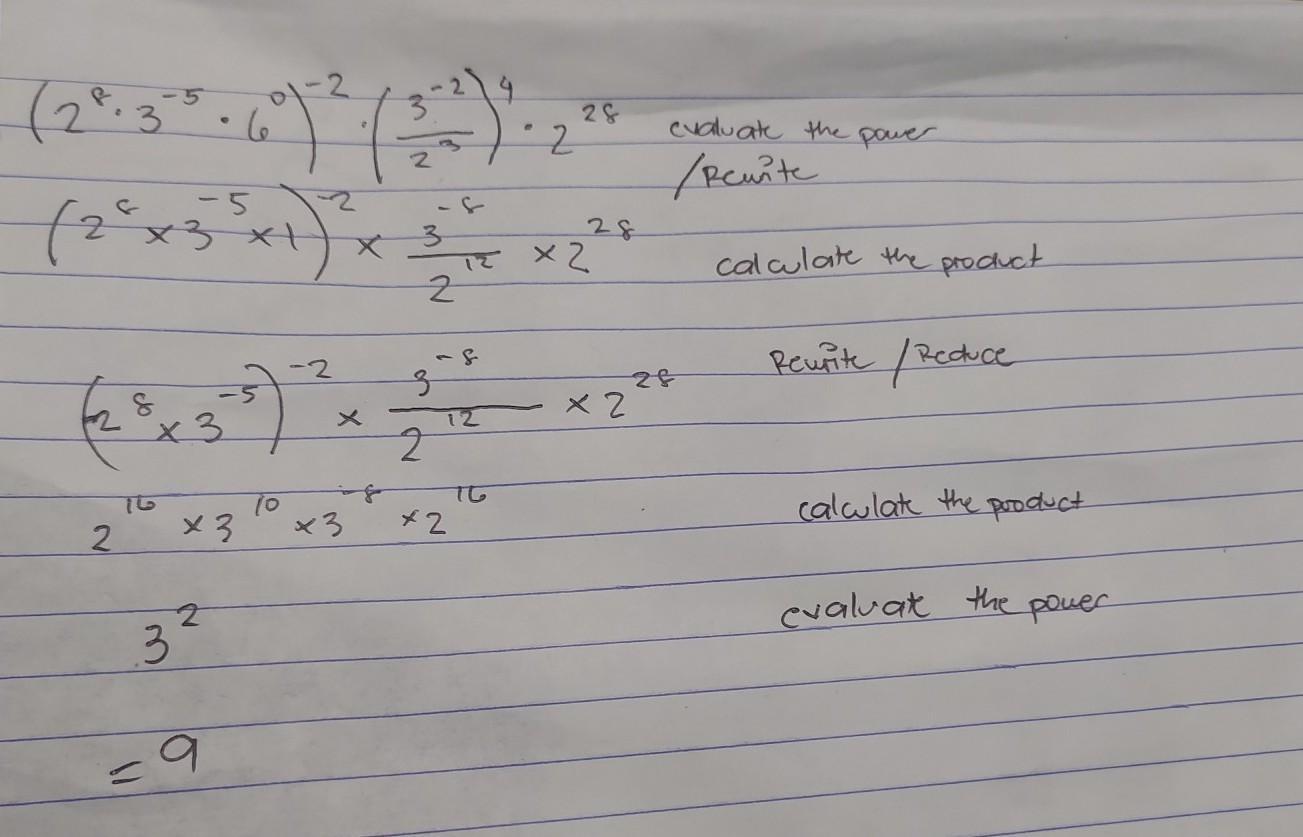 (2⁸·3⁻⁵·6⁰)⁻²·(3⁻²/2³)⁴·2²⁸ evaluate the power
/Rewrite
(2⁸×3⁻⁵×1)⁻²×3⁻⁸/2¹²×2²⁸ calculate the product
(2⁸×3⁻⁵)⁻²×3⁻⁸/2¹²×2²⁸ Rewrite/Reduce
2¹⁶×3¹⁰×3⁻⁸×2¹⁶ calculate the product
3² evaluate the power
=9